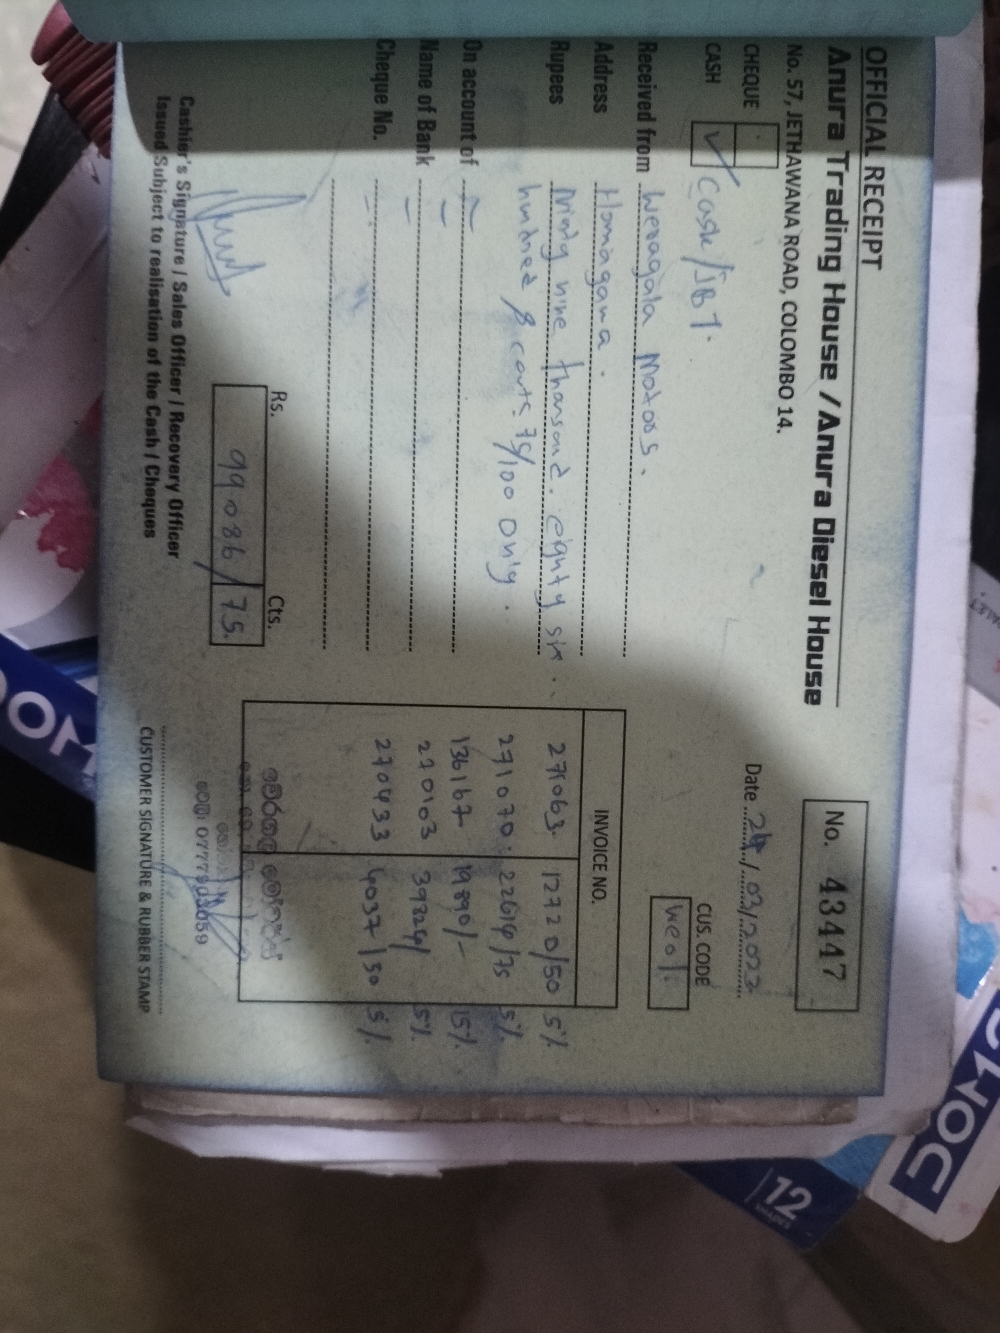 OFFICIAL RECEIPT
Anura Trading House / Anura Diesel House
No. 57, JETHAWANA ROAD, COLOMBO 14.
No. 43447
Date 24/03/2023
CHEQUE
CASH ✓ Cash/JBT.
CUS. CODE
We01
Received from Weragala Motors.
Address Homagama.
Rupees Ninty nine thousand. eighty six
hundred & cents 75/100 only.
On account of
Name of Bank
Cheque No.
INVOICE NO.
271063 12720/50 5%
271070 22614/75 5%
136167 19890/- 15%
270103 39824/ 5%
270433 4037/50 5%
Rs. Cts.
99086/75
Cashier's Signature / Sales Officer / Recovery Officer
Issued Subject to realisation of the Cash / Cheques
CUSTOMER SIGNATURE & RUBBER STAMP
DOMS
DOMS
12
SHADES